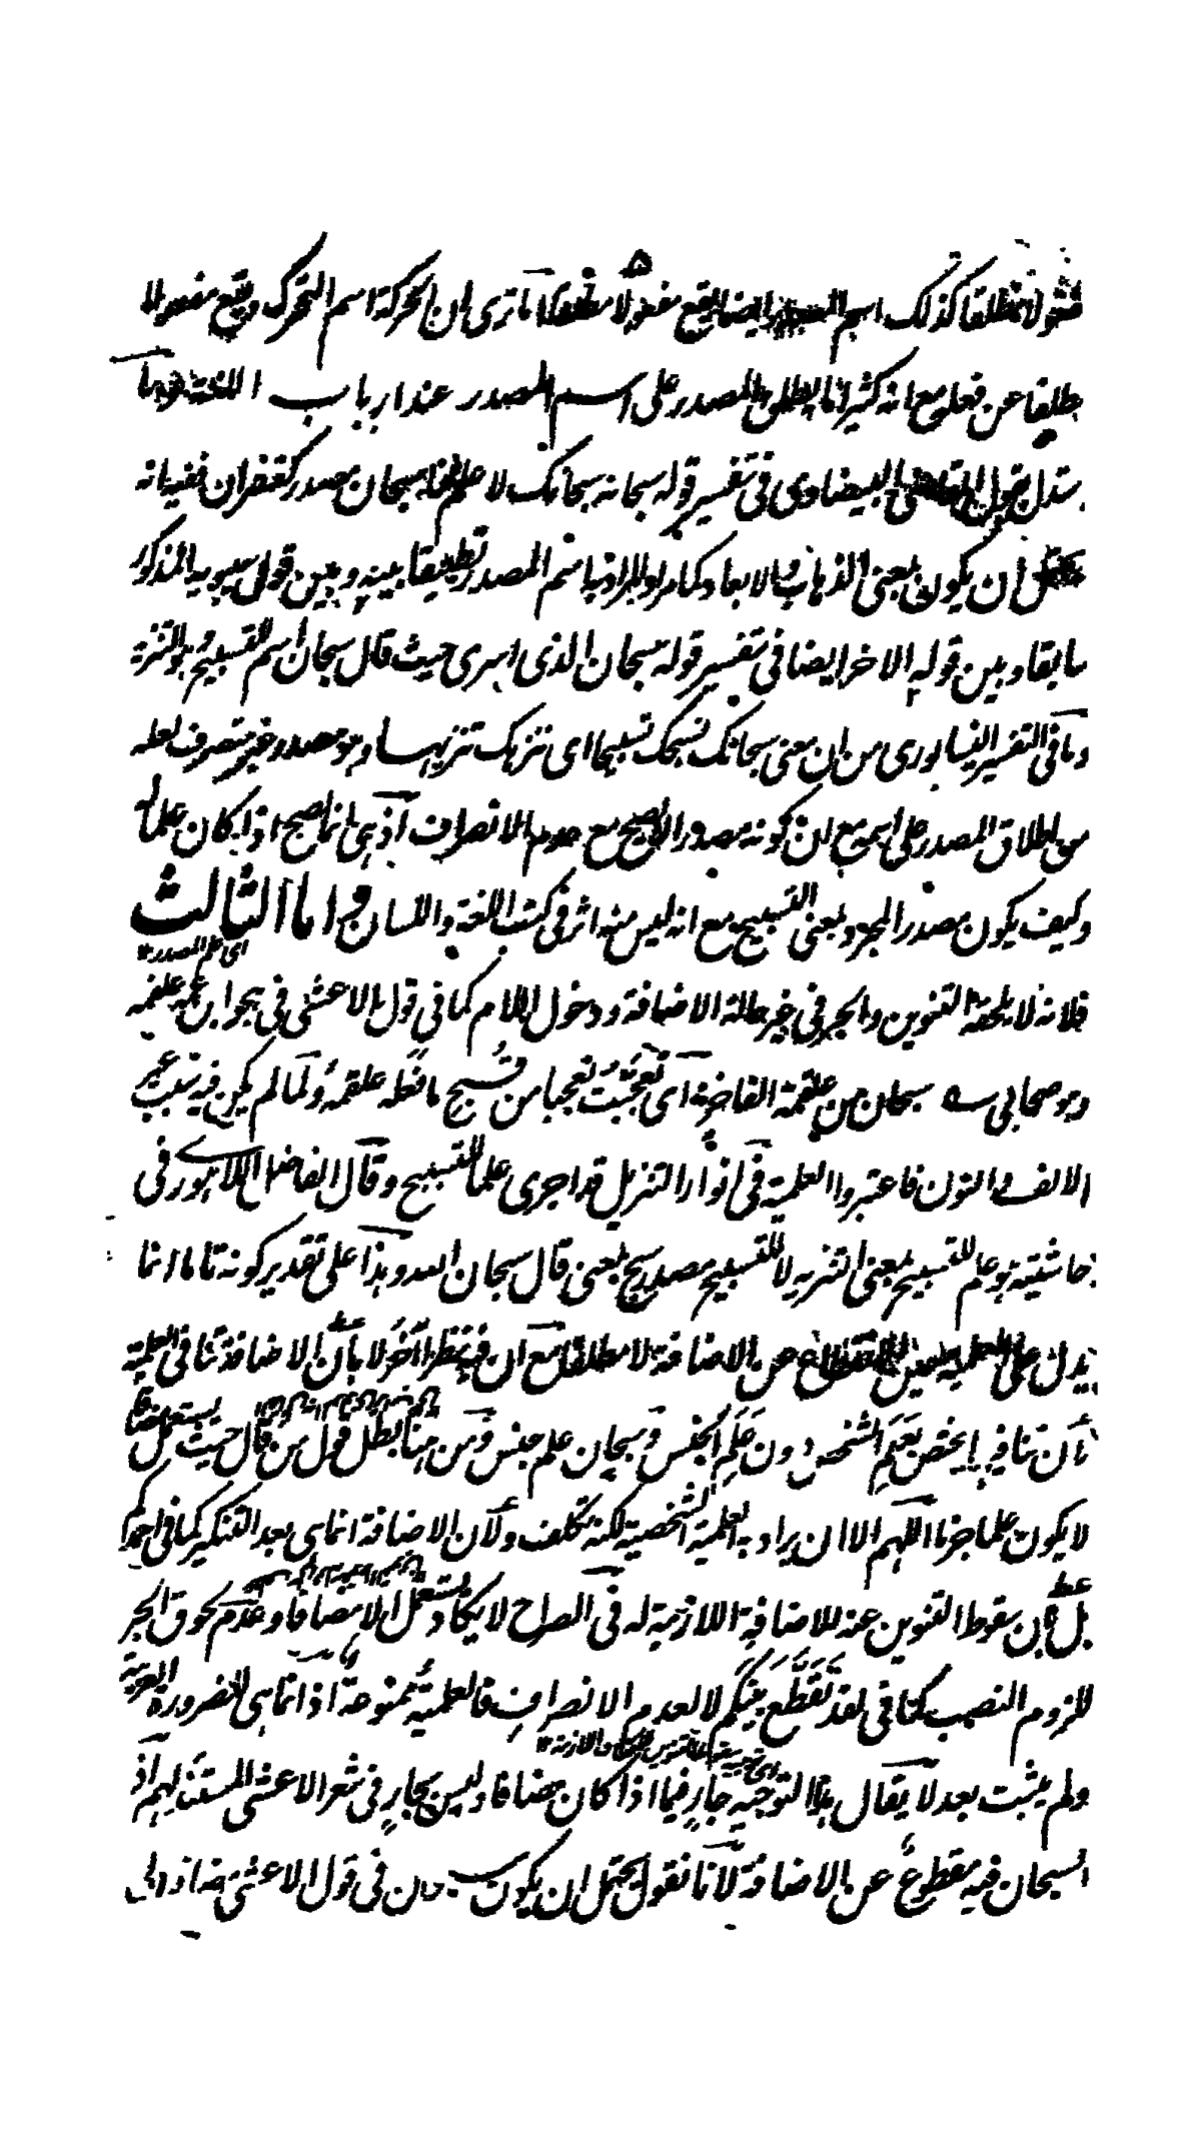 مفعولا مطلقا كذلك اسم المصدر ايضا يقع مفعولا مطلقا اما ترى ان الحركة اسم التحرك ويقع مفعولا
مطلقا عن فعله مع انه كثيرا ما يطلق المصدر على اسم المصدر عند ارباب اللغة وما
يستدل بقول القاضى البيضاوى فى تفسير قوله سبحانه سبحانك لا علم لنا سبحان مصدر كغفران ففيه انه
يحتمل ان يكون بمعنى الذهاب والابعاد كما مر او المراد به اسم المصدر تطبيقا بينه وبين قول سيبويه المذكور
سابقا وبين قوله الاخر ايضا فى تفسير قوله سبحان الذى اسرى حيث قال سبحان اسم للتسبيح هو التنزيه
وما فى التفسير النيسابورى من ان معنى سبحانك نسبحك تسبيحا اى ننزهك تنزيها وهو مصدر غير متصرف لعله
من اطلاق المصدر على اسمه مع ان كونه مصدرا لا يصح مع عدم الانصراف اذ هى انما يصح اذا كان علما له
وكيف يكون مصدر المجرد بمعنى التسبيح مع انه ليس منه اثر فى كتب اللغة واللسان واما الثالث
اى علم المصدر ١٢
فلانه لا يلحقه التنوين والجر فى غير حالة الاضافة ودخول اللام كما فى قول الاعشى فى هجو ابن عمه علقمه
وهو صحابى سبحان من علقمة الفاخر اى تعجبت تعجبا من قبيح ما فعله علقمه ولما لم يكن فيه سبب غير
الالف والنون فاعتبروا العلمية فى انوار التنزيل قد اجرى علما للتسبيح وقال الفاضل اللاهورى فى
حاشيته هو علم للتسبيح بمعنى التنزيه لا للتسبيح مصدر سبح بمعنى قال سبحان الله وهذا على تقدير كونه تاما انما
يدل على العلمية حين القطع عن الاضافة لا مطلقا مع ان فيه نظرا اخر لا بان الاضافة تنافى العلمية
بان تنافيه انما يختص بعلم الشخص دون علم الجنس وسبحان علم جنس ومن هنا بطل قول من قال حيث يستعمل مضافا
لا يكون علما جزما اللهم الا ان يراد به العلمية الشخصية لكنه تكلف ولان الاضافة انما هى بعد التنكير كما فى احمدكم
بل بان سقوط التنوين عنه للاضافة اللازمة له فى الصراح لا يكاد يستعمل الا مضافا وعدم لحوق الجر
للزوم النصب كما فى لقد تقطع بينكم لا لعدم الانصراف فالعلمية ممنوعة اذ انما هى للضرورة العربية
ولم يثبت بعد لا يقال هذا التوجيه جار فيما اذا كان مضافا وليس بجار فى شعر الاعشى المستند لهم اذ
السبحان فيه مقطوع عن الاضافة لانا نقول يحتمل ان يكون سبحان فى قول الاعشى مضافا الى